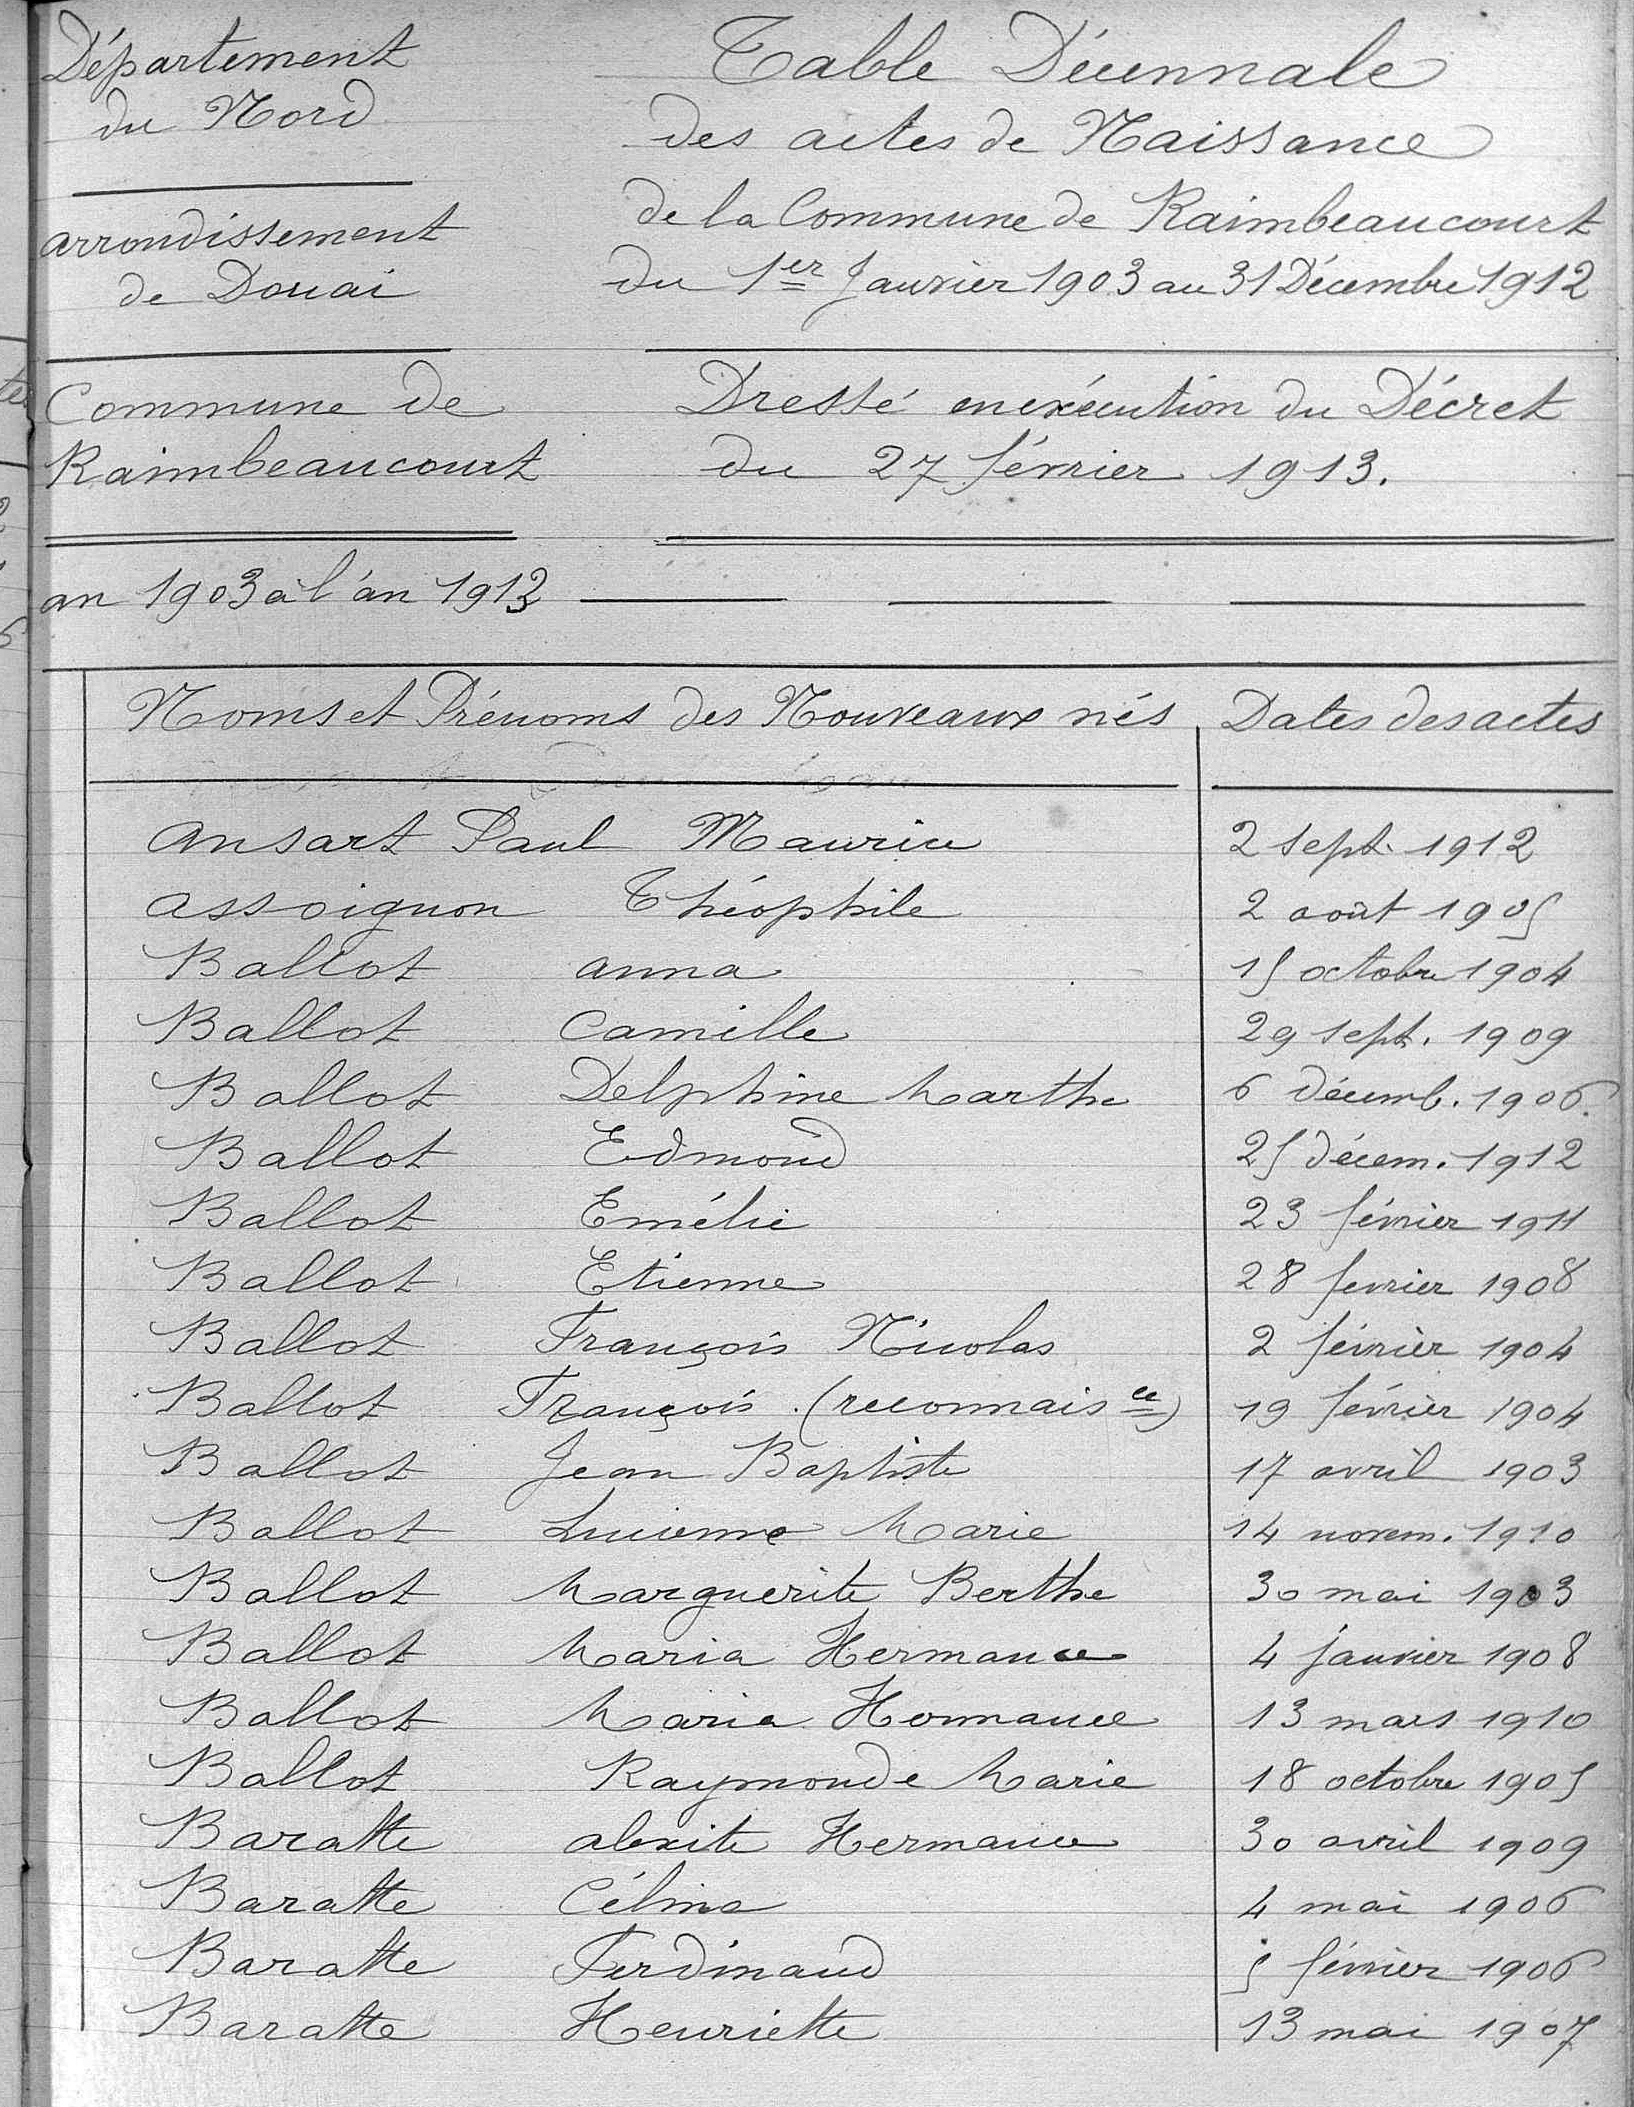 Département
du Nord
arrondissement
de Douai
Commune de
Raimbeaucourt
an 1903 à l'an 1912
Table Décennale
des actes de Naissance
de la Commune de Raimbeaucourt
du 1er Janvier 1903 au 31 Décembre 1912
Dressé en exécution du Décret
du 27 février 1913.
Noms et Prénoms des Nouveaux nés Dates des actes
Ansart Paul Maurice 2 sept. 1912
Assoignon Théophile 2 août 1905
Ballot Anna 15 octobre 1904
Ballot Camille 29 sept. 1909
Ballot Delphine Marthe 6 décemb. 1906.
Ballot Edmond 25 décem. 1912
Ballot Emélie 23 février 1911
Ballot Etienne 28 fevrier 1908
Ballot François Nicolas 2 février 1904
Ballot François (reconnais ce) 19 février 1904
Ballot Jean Baptiste 17 avril 1903
Ballot Lucienne Marie 14 novem. 1910
Ballot Marguerite Berthe 30 mai 1903
Ballot Maria Hermance 4 janvier 1908
Ballot Maria Hermance 13 mars 1910
Ballot Raymonde Marie 18 octobre 1905
Baratte Hermance 30 avril 1909
Baratte Célina 4 mai 1906
Baratte Ferdinand 5 février 1906
Baratte Henriette 13 mai 1907